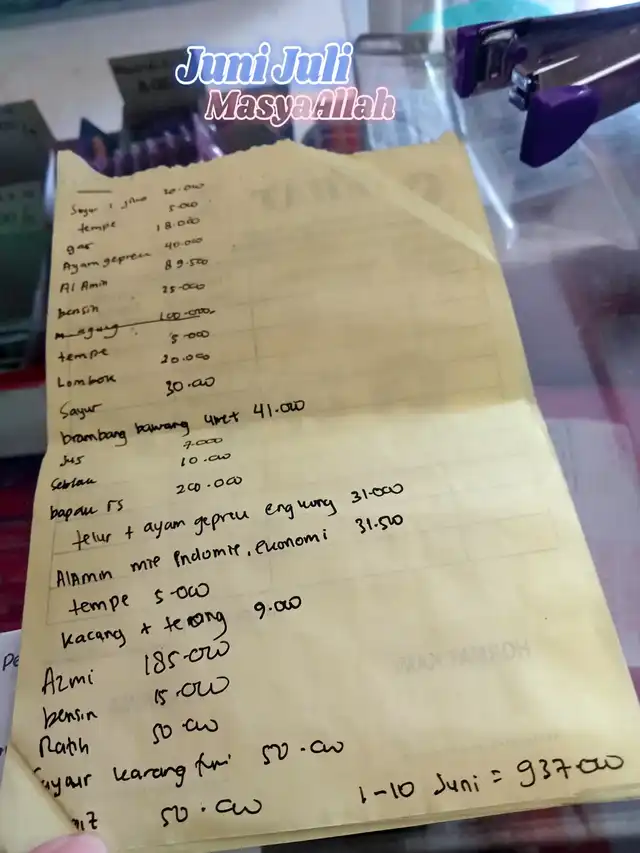 Juni Juli
MasyaAllah
Sayur 20.000
tempe 5.000
gas 18.000
Ayam gepreu 40.000
Al Amin 89.500
bensin 25.000
100.000
tempe 5.000
Lombok 20.000
Sayur 30.000
brambang bawang uret 41.000
Jus 7.000
Seblau 10.000
bapau rs 200.000
telur + ayam gepreu engkung 31.000
AlAmin mie Indomie, ekonomi 31.500
tempe 5.000
kacang + terong 9.000
Azmi 185.000
bensin 15.000
Ratih 50.000
Sayur karang 50.000
50.000
1-10 Juni = 937.000